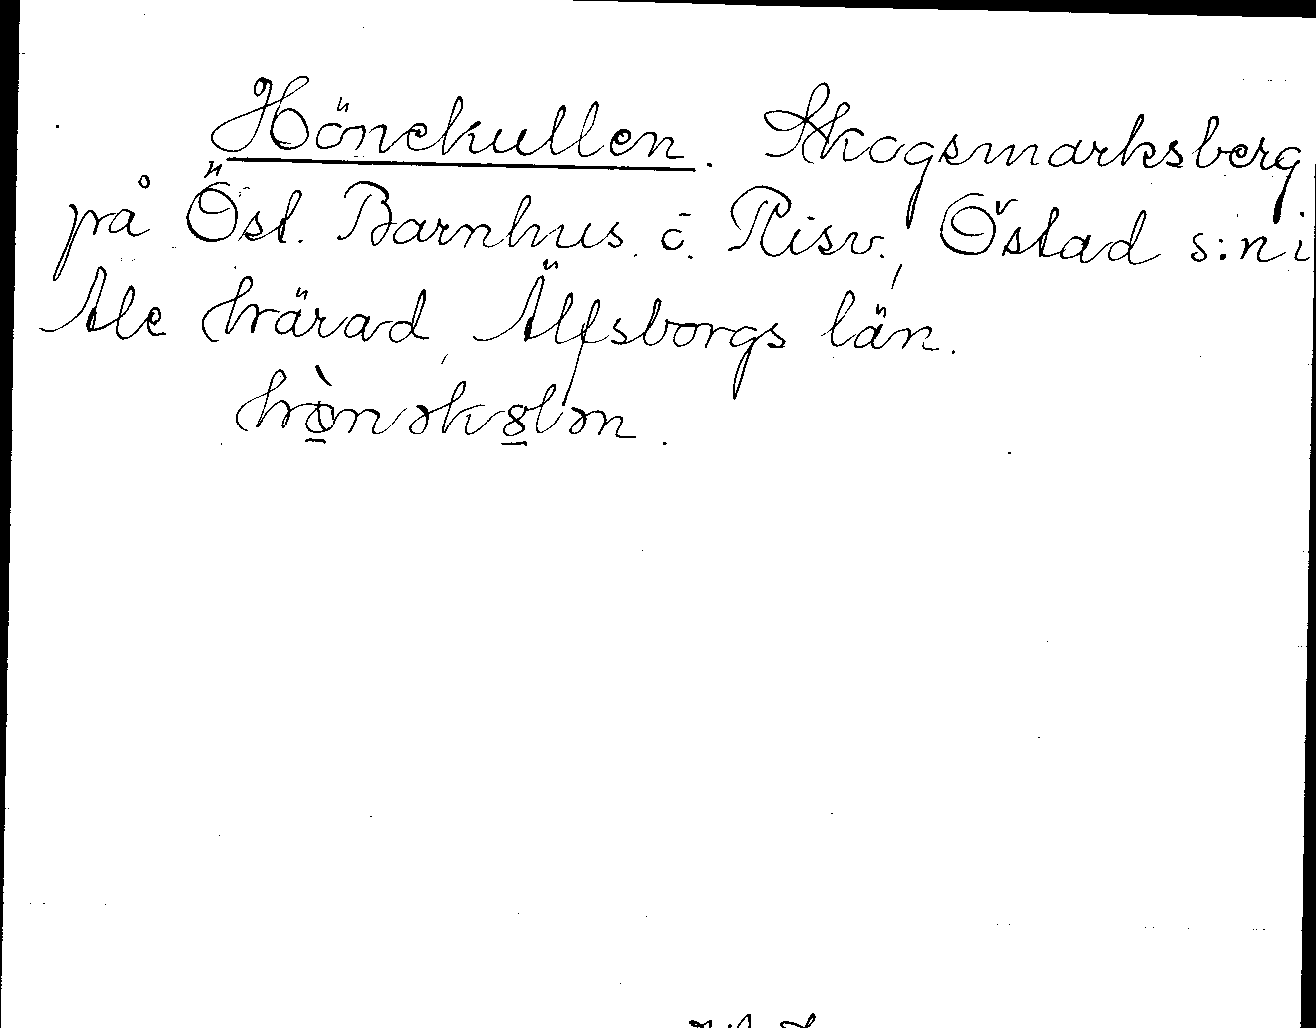 Hönekullen. Skogsmarksberg
på Öst. Barnhus. ō. Risv., Östad s:n i
Ale härad, Älfsborgs län.